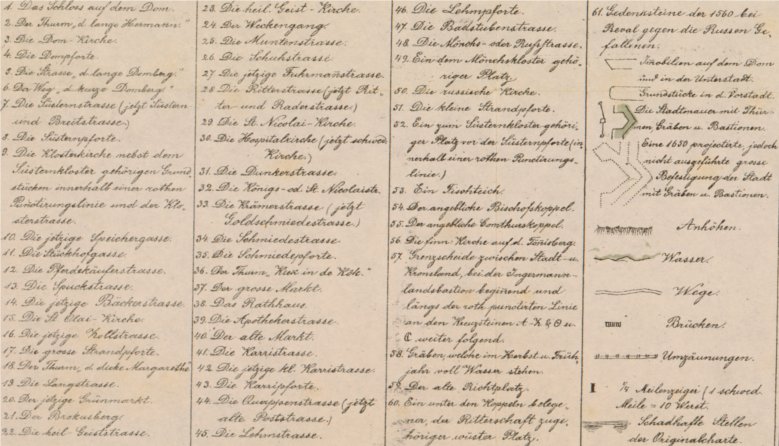 1. Das Schloss auf dem Dom.
2. Der Thurm „d. lange Hermann."
3. Die Dom-Kirche.
4. Die Dompforte.
5. Die Strasse „d. lange Domberg."
6. Der Weg „d. kurze Domberg."
7. Die Süsternstrasse (jetzt Süstern
und Breitstrasse.)
8. Die Süsternpforte.
9. Die Klosterkirche nebst dem
Süsternkloster gehörigen Grund-
stücken innerhalb einer rothen
Punktirungslinie und der Klo-
sterstrasse.
10. Die jetzige Speichergasse.
11. Die Stückhofgasse
12. Die Pferdekäuferstrasse.
13. Die Spuckstrasse.
14. Die jetzige Bäckerstrasse.
15. Die St. Olai-Kirche.
16. Die jetzige Zollstrasse.
17. Die grosse Strandpforte.
18. Der Thurm „d. dicke Margarethe"
19. Die Langstrasse.
20. Der jetzige Grünmarkt.
21. Der Brokusberg.
22. Die heil. Geiststrasse.
23. Die heil. Geist-Kirche.
24. Der Wockengang.
25. Die Muntenstrasse.
26. Die Schuhstrasse.
27. Die jetzige Fuhrmannstrasse.
28. Die Ritterstrasse (jetzt Rit-
ter und Raderstrasse.)
29. Die St. Nicolai-Kirche.
30. Die Hospitalkirche (jetzt schwed.
Kirche.)
31. Die Dunkerstrasse.
32. Die Königs- od. St. Nicolaistr.
33. Die Krämerstrasse (jetzt
Goldschmiedestrasse.)
34. Die Schmiedestrasse.
35. Die Schmiedepforte.
36. Der Thurm „Kiek in de Kök."
37. Der grosse Markt.
38. Das Rathhaus.
39. Die Apothekerstrasse.
40. Der alte Markt.
41. Die Karristrasse.
42. Die jetzige kl. Karristrasse.
43. Die Karripforte.
44. Die Quappenstrasse (jetzt
alte Poststrasse.)
45. Die Lehmstrasse.
46. Die Lehmpforte.
47. Die Badstubenstrasse.
48. Die Mönchs- oder Rußstrasse.
49. Ein dem Mönchskloster gehö-
riger Platz.
50. Die russische Kirche.
51. Die kleine Strandpforte.
52. Ein zum Süsternkloster gehöri-
ger Platz vor der Süsternpforte (in-
nerhalb einer rothen Punktirungs-
linie.)
53. Ein Fischteich.
54. Der angebliche Bischofskoppel.
55. Der angebliche Comthurkoppel.
56. Die finn. Kirche auf d. Tönisberg.
57. Grenzscheide zwischen Stadt- u.
Kronsland, bei der Ingermann-
landsbastion beginend und
längs der roth punktirten Linie
an den Kreuzsteinen A. K. &
weiter folgend.
58. Gräben, welche im Herbst u. Früh-
jahr voll Wasser stehen.
59. Der alte Richtplatz.
60. Ein unter den Koppeln belege-
ner, der Ritterschaft zuge-
höriger wüster Platz.
61. Gedenksteine der 1560 bei
Reval gegen die Russen Ge-
fallenen.
Immobilien auf dem Dom
und in der Unterstadt.
Grundstücke in d. Vorstadt.
Die Stadtmauer mit Thür-
men Gräben u. Bastionen.
Eine 1650 projectirte, jedoch
nicht ausgeführte grosse
Befestigung der Stadt
mit Gräben u. Bastionen.
Anhöhen.
Wasser.
Wege.
Brücken.
Umzäunungen.
1/4 Meilenzeiger (1 schwed.
Meile = 10 Werst.
Schadhafte Stellen
der Originalcharte.